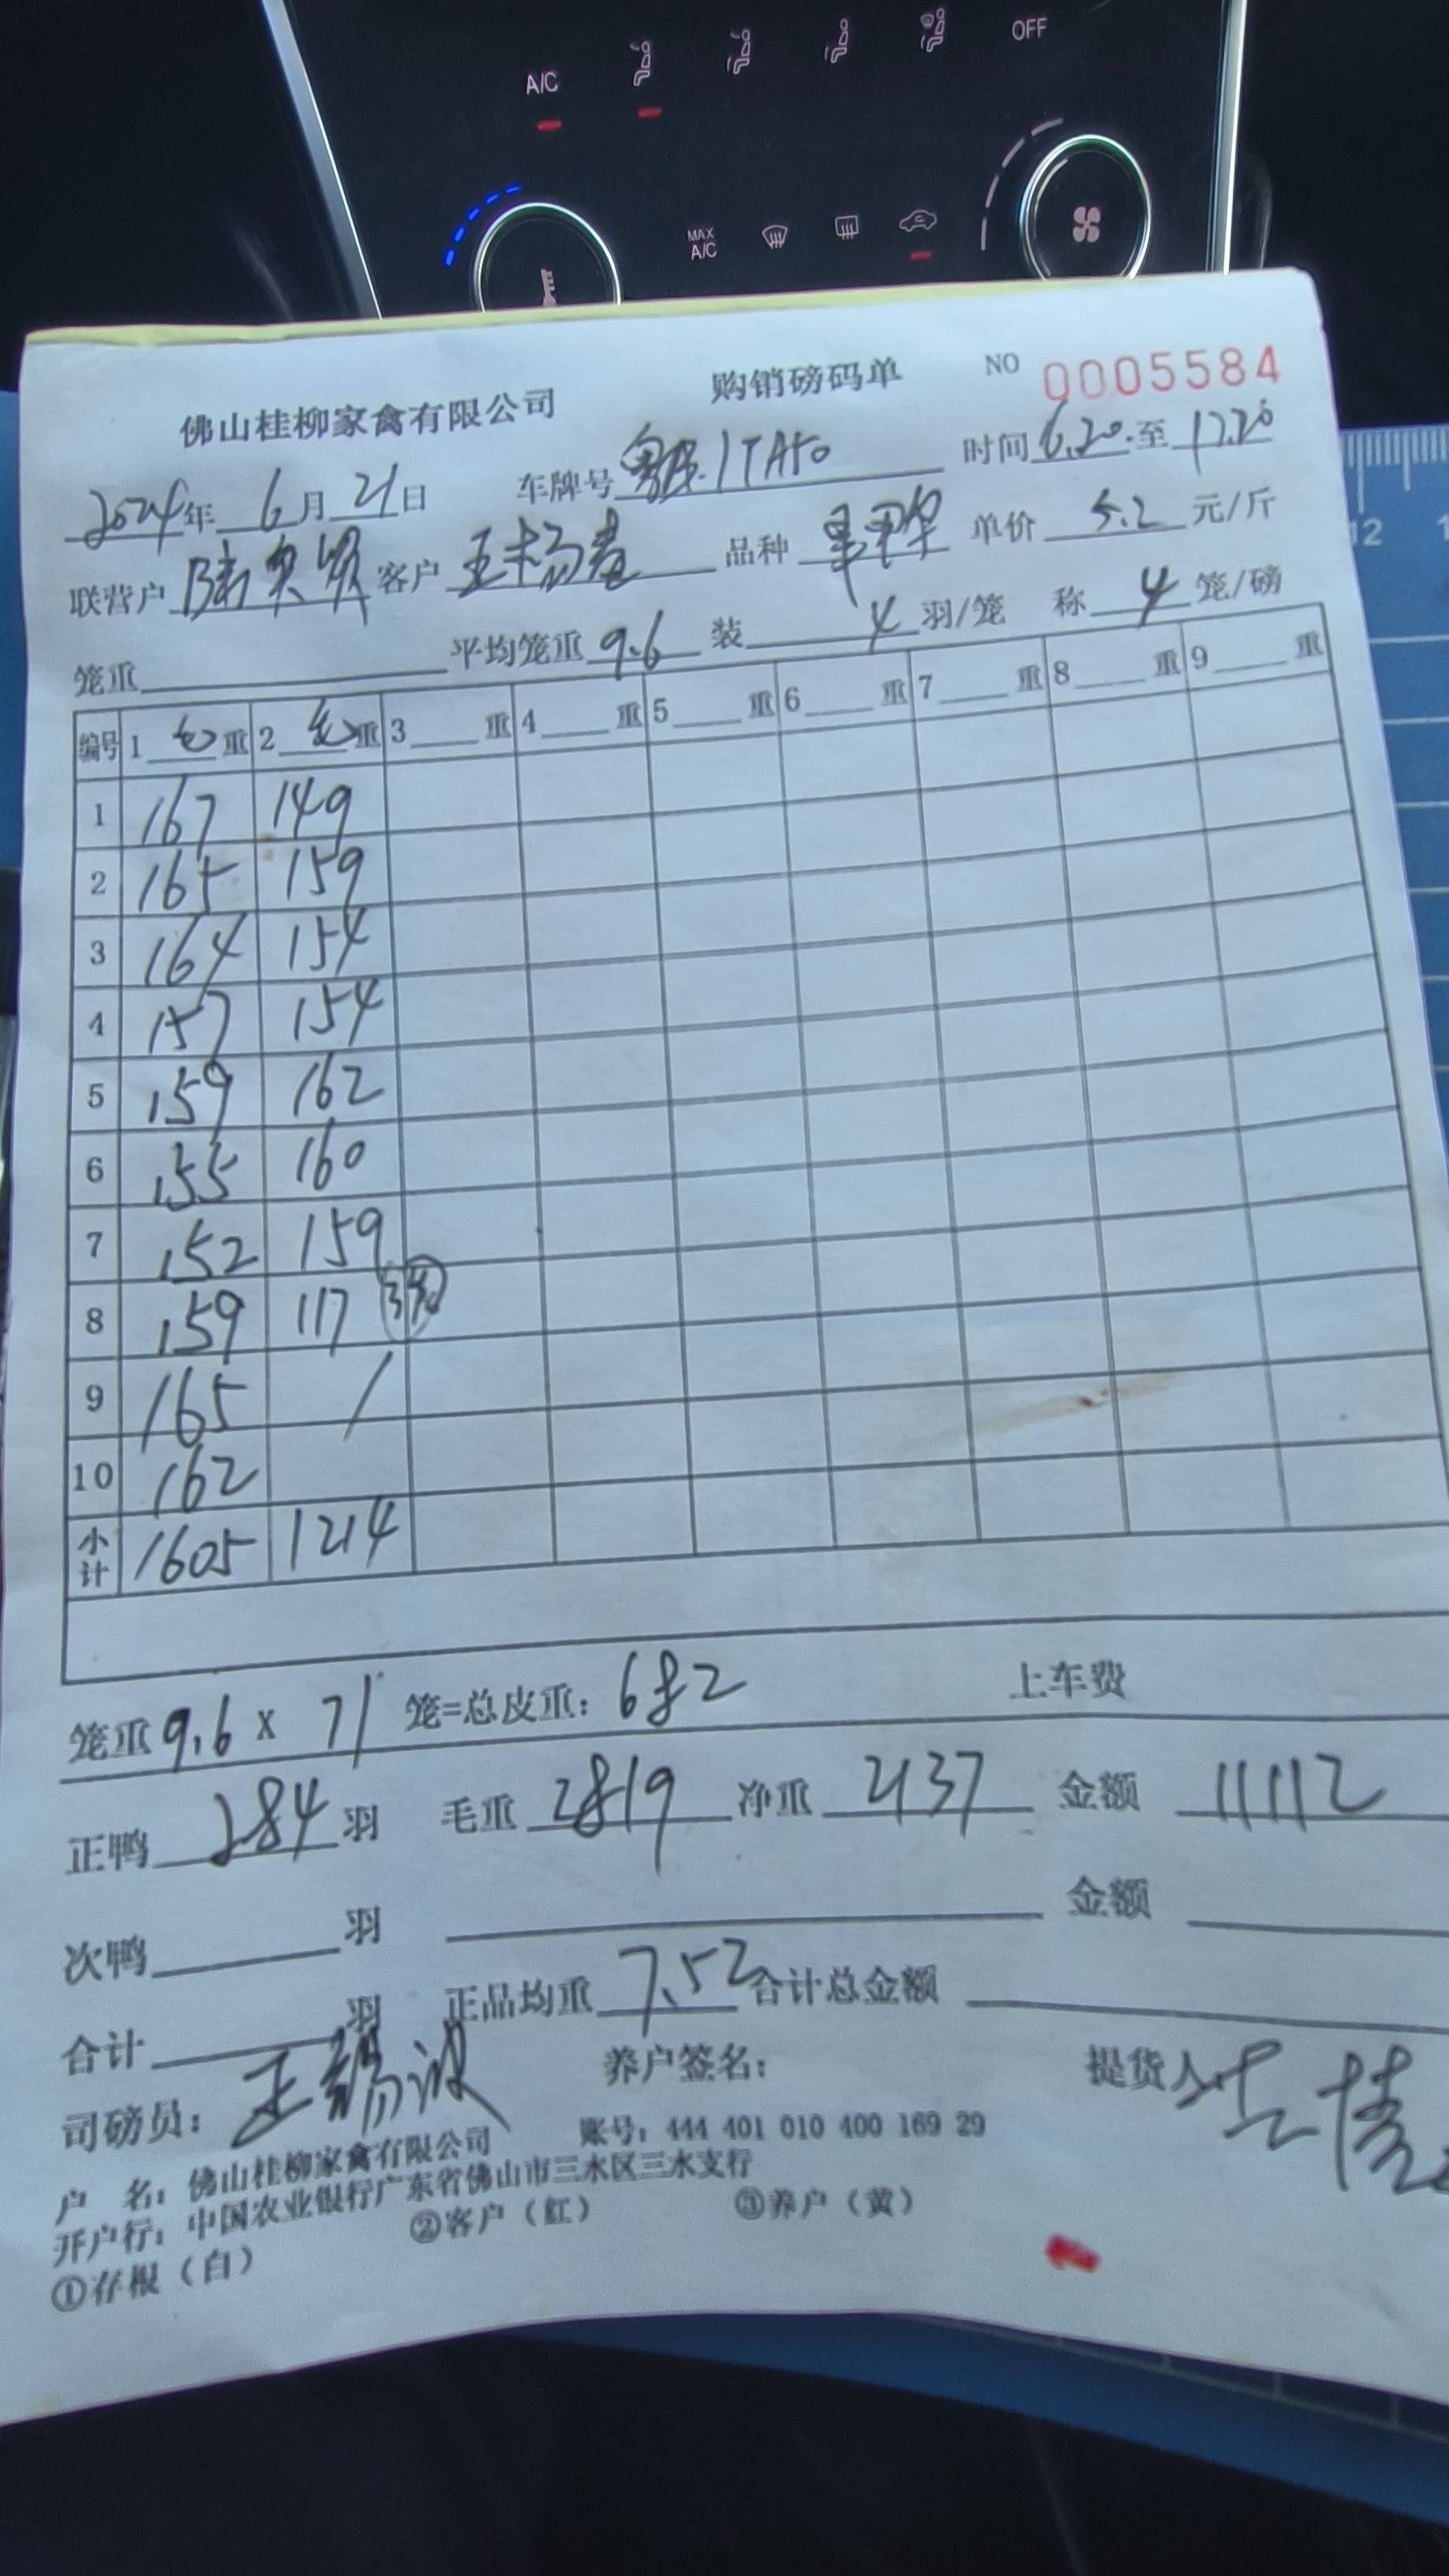 A/C OFF
MAX A/C
佛山桂柳家禽有限公司 购销磅码单 NO 0005584
2024年 6月21日 车牌号 时间 6.20.至 17.20
联营户 客户 王杨春 品种 单价 5.2 元/斤
笼重 平均笼重 9.6 装 4 羽/笼 称 4 笼/磅
编号 1 毛 重 2 毛 重 3 重 4 重 5 重 6 重 7 重 8 重 9 重
1 167 149
2 165 159
3 164 154
4 157 154
5 159 162
6 155 160
7 152 159
8 159 117 3笼
9 165 /
10 162
小计 1605 1214
笼重 9.6 x 71 笼=总皮重: 682 上车费
正鸭 284 羽 毛重 2819 净重 2137 金额 11112
次鸭 羽 金额
合计 羽 正品均重 7.52 合计总金额
司磅员: 王锡波 养户签名: 提货人:
户 名: 佛山桂柳家禽有限公司 账号: 444 401 010 400 169 29
开户行: 中国农业银行广东省佛山市三水区三水支行
①存根（白） ②客户（红） ③养户（黄）
12